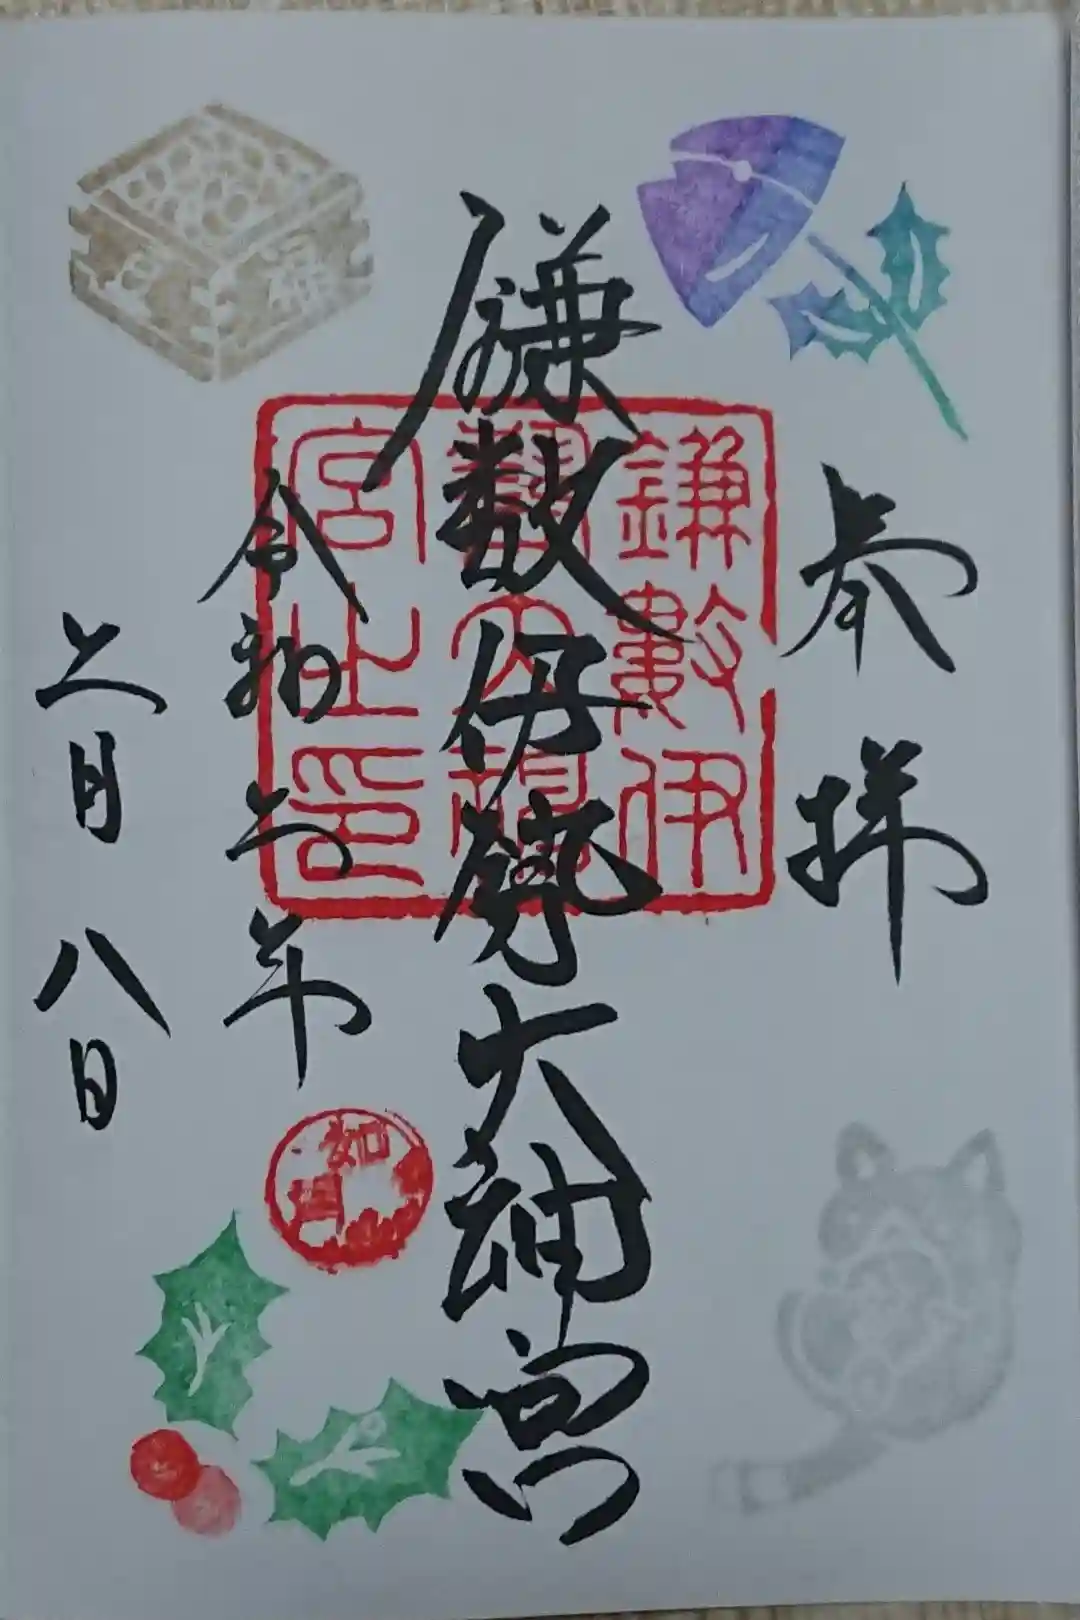 奉拝
鎌数伊勢大神宮
令和二年
二月八日
鎌數伊
勢大神
宮之印
如月